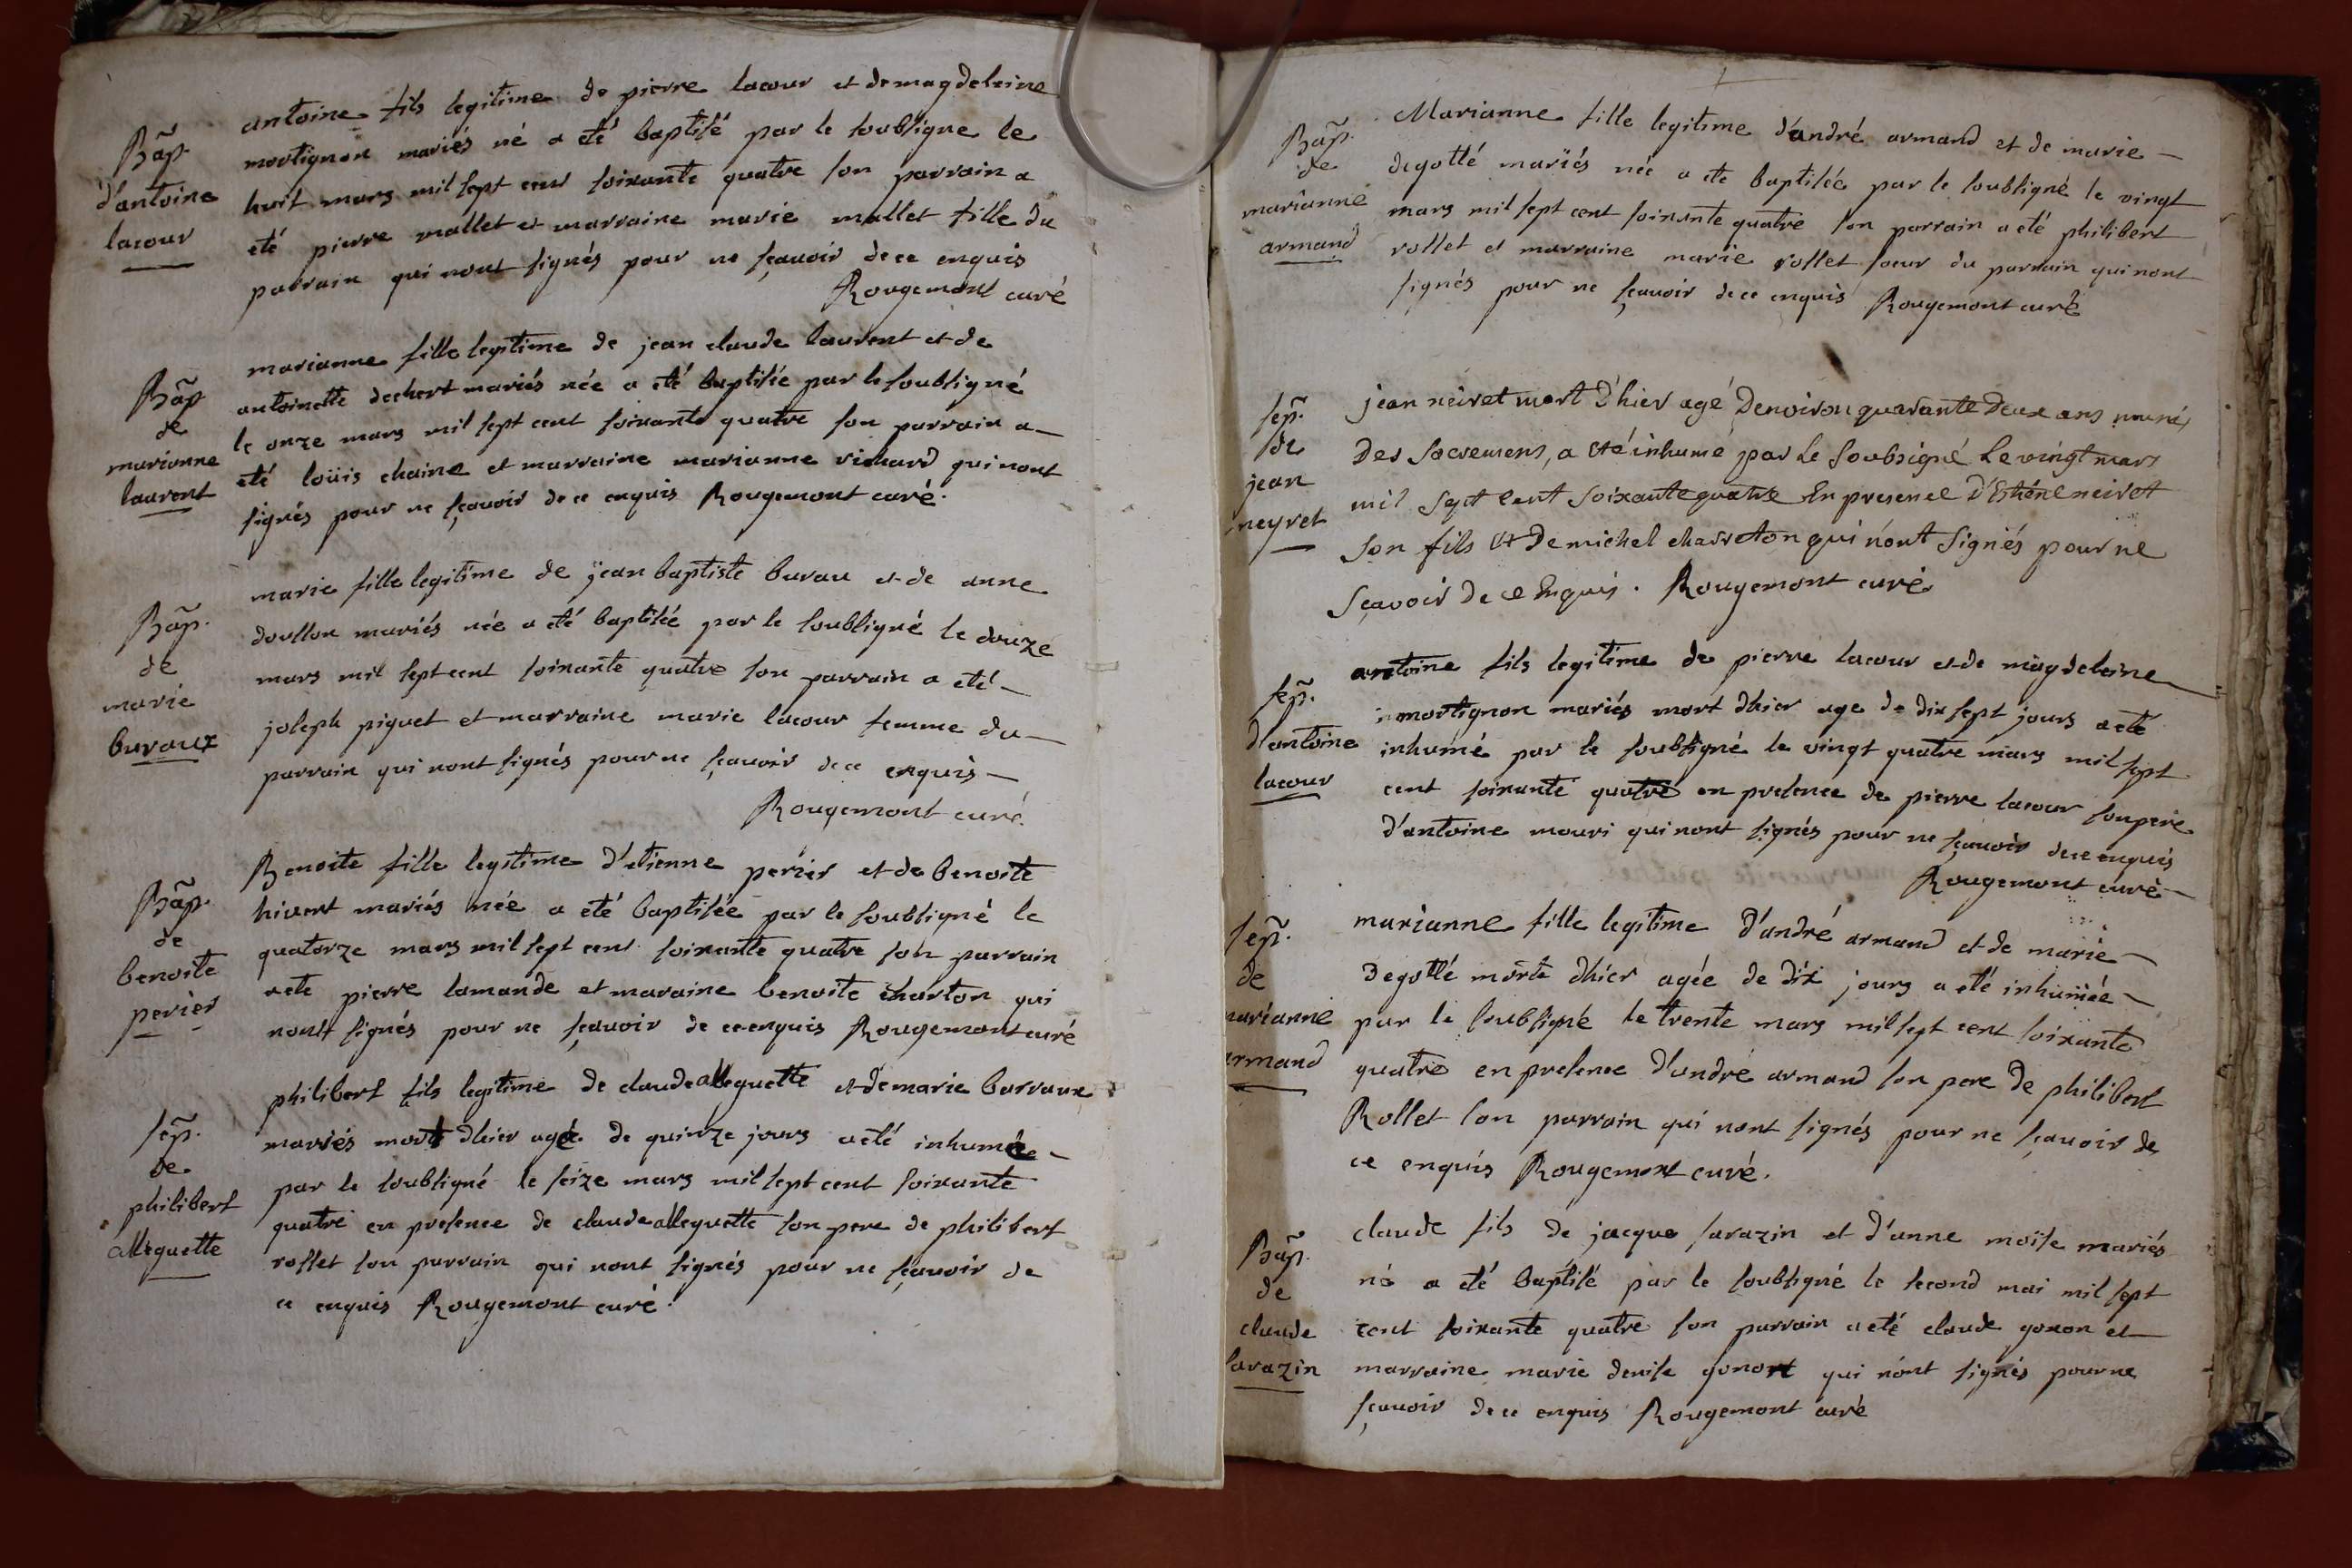 Bap̃.
d'antoine
lacour
antoine fils legitime de pierre lacour et de magdeleine
mortignon mariés né a eté baptisé par le soubsigne le
huit mars mil sept cent soixante quatre son parrain a
eté pierre mallet et marraine marie mallet fille du
parrain qui nont signés pour ne sçavoir de ce enquis
Rougemont curé
Bap̃
de
marianne
laurent
marianne fille legitime de jean claude laurent et de
antoinette dechert mariés née a eté baptisée par le soubsigné
le onze mars mil sept cent soixante quatre son parrain a
eté loüis chaine et marraine marianne richard qui nont
signés pour ne sçavoir de ce enquis Rougemont curé.
Bap̃.
de
marie
buraux
marie fille legitime de jean baptiste burau et de anne
doullon mariés née a eté baptisée par le soubsigné le douze
mars mil sept cent soixante quatre son parrain a eté
joseph piguet et marraine marie lacour femme du
parrain qui nont signés pour ne sçavoir de ce enquis
Rougemont curé.
Bap̃.
de
benoite
perier
Benoite fille legitime d'etienne perier et de benoite
hivert mariés née a eté baptisée par le soubsigné le
quatorze mars mil sept cent soixante quatre son parrain
a eté pierre lamande et maraine benoite charton qui
nont signés pour ne sçavoir de ce enquis Rougemont curé
sep̃.
de
philibert
alleguette
philibert fils legitime de claude alleguette et de marie barraux
mariés mort dhier agé de quinze jours a eté inhumée
par le soubsigné le seize mars mil sept cent soixante
quatre en presence de claude alleguette son pere de philibert
rollet son parrain qui nont signés pour ne sçavoir de
ce enquis Rougemont curé.
Bap̃.
de
marianne
armand
Marianne fille legitime d'andré armand et de marie
degotté mariés née a ete baptisée par le soubsigné le vingt
mars mil sept cent soixante quatre son parrain a eté philibert
rollet et marraine marie rollet soeur du parrain qui nont
signés pour ne sçavoir de ce enquis Rougemont curé
sep̃.
de
jean
neyret
jean neiret mort d'hier agé denviron quarante deux ans munis
des sacremens, a eté inhumé par le soubsigné le vingt mars
mil sept cent soixante quatre En presence d'Etiene neiret
son fils et de michel charreton qui n'ont signés pour ne
sçavoir de ce Enquis. Rougemont curé
sep̃.
d'antoine
lacour
antoine fils legitime de pierre lacour et de magdeleine
mortignon mariés mort dhier age de dix sept jours a eté
inhumé par le soubsigné le vingt quatre mars mil sept
cent soixante quatre en presence de pierre lacour son pere
d'antoine mouri qui nont signés pour ne sçavoir de ce enquis
Rougemont curé
sep̃.
de
marianne
armand
marianne fille legitime d'andré armand et de marie
degotté morte dhier agée de dix jours a eté inhumée
par le soubsigné le trente mars mil sept cent soixante
quatre en presence d'andré armand son pere de philibert
Rollet son parrain qui nont signés pour ne sçavoir de
ce enquis Rougemont curé.
Bap̃.
de
claude
sarazin
claude fils de jacque sarazin et d'anne moïse mariés
né a eté baptisé par le soubsigné le second mai mil sept
cent soixante quatre son parrain a eté claude gonon et
marraine marie denise gonon qui n'ont signés pour ne
sçavoir de ce enquis Rougemont curé